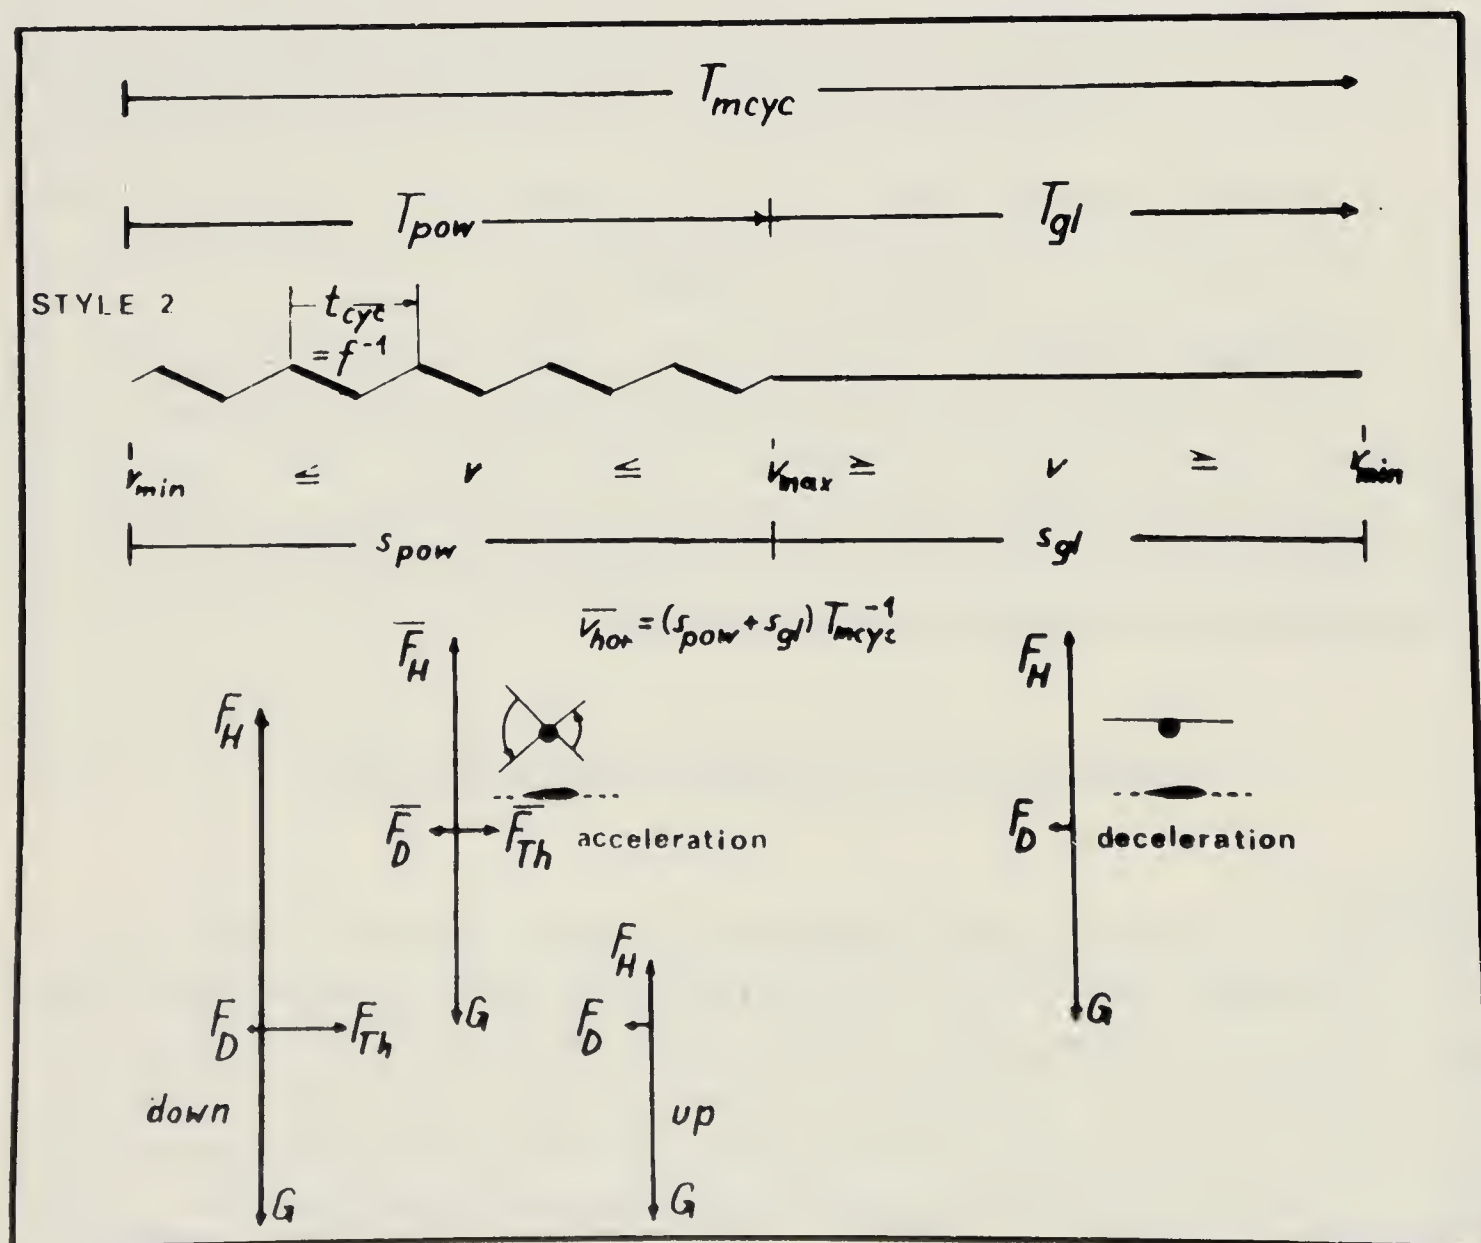 T_mcyc
T_pow T_gl
STYLE 2
t_cyc
= f⁻¹
v_min ≦ v ≦ v_max ≧ v ≧ v_min
s_pow s_gl
v̅_hor = (s_pow + s_gl) T_mcyc⁻¹
F̅_H
F_H
F_H
F̅_D F̅_Th acceleration
F_D deceleration
F_H
G
G
F_D F_Th
F_D
down
up
G
G